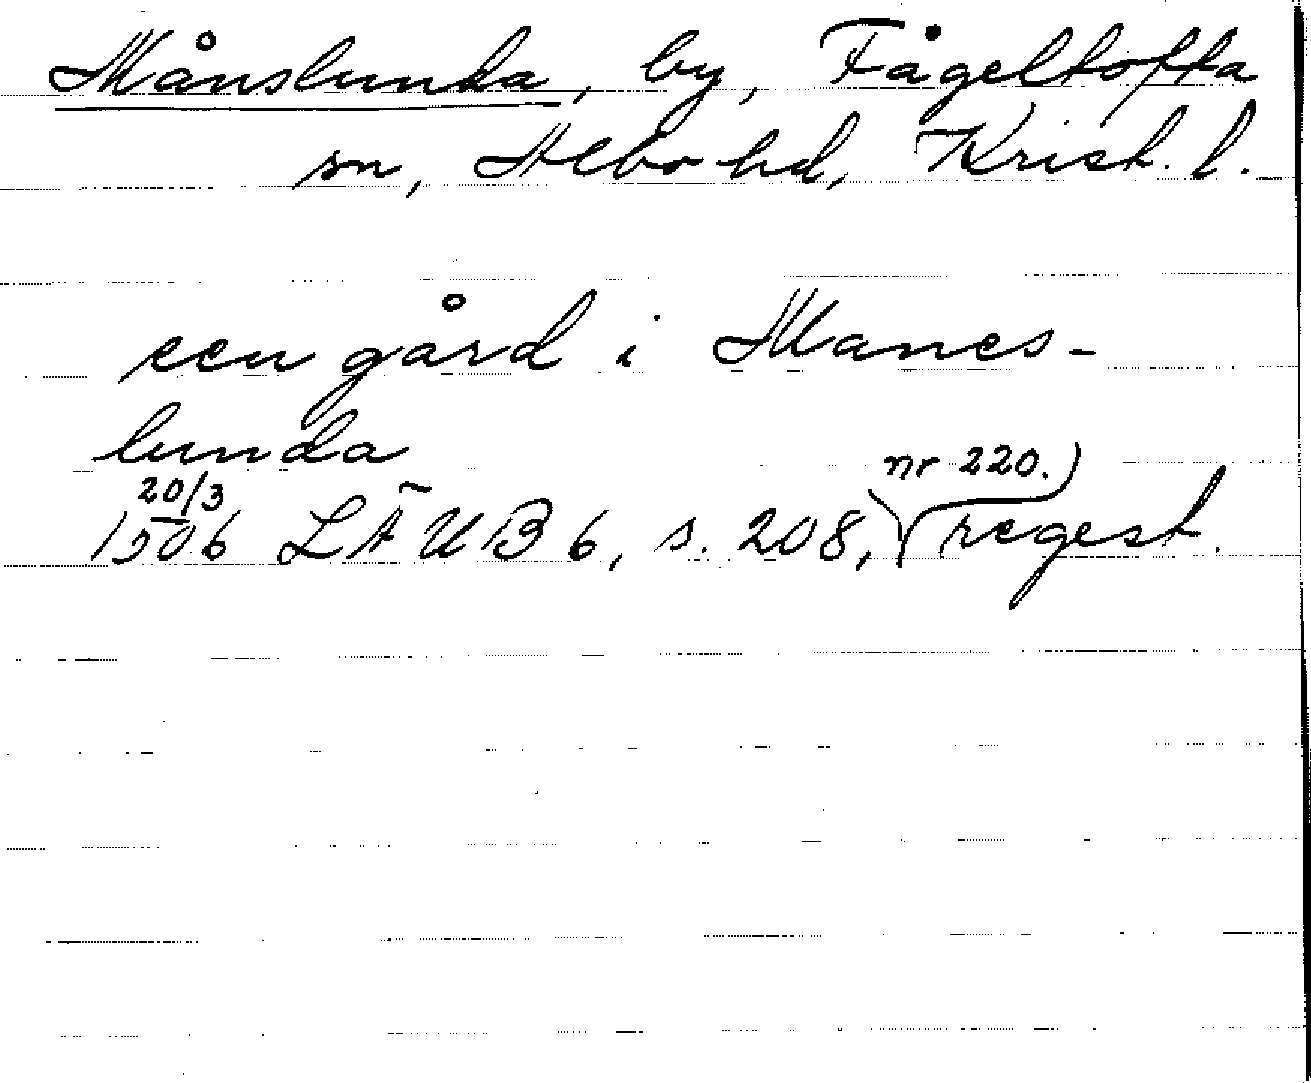 Månslunda, by, Fågeltofta
sn, Albo hd, Krist. l.
een gård i Manes-
lunda
20/3
1506 LÄUB 6, s. 208, nr 220.) regest.